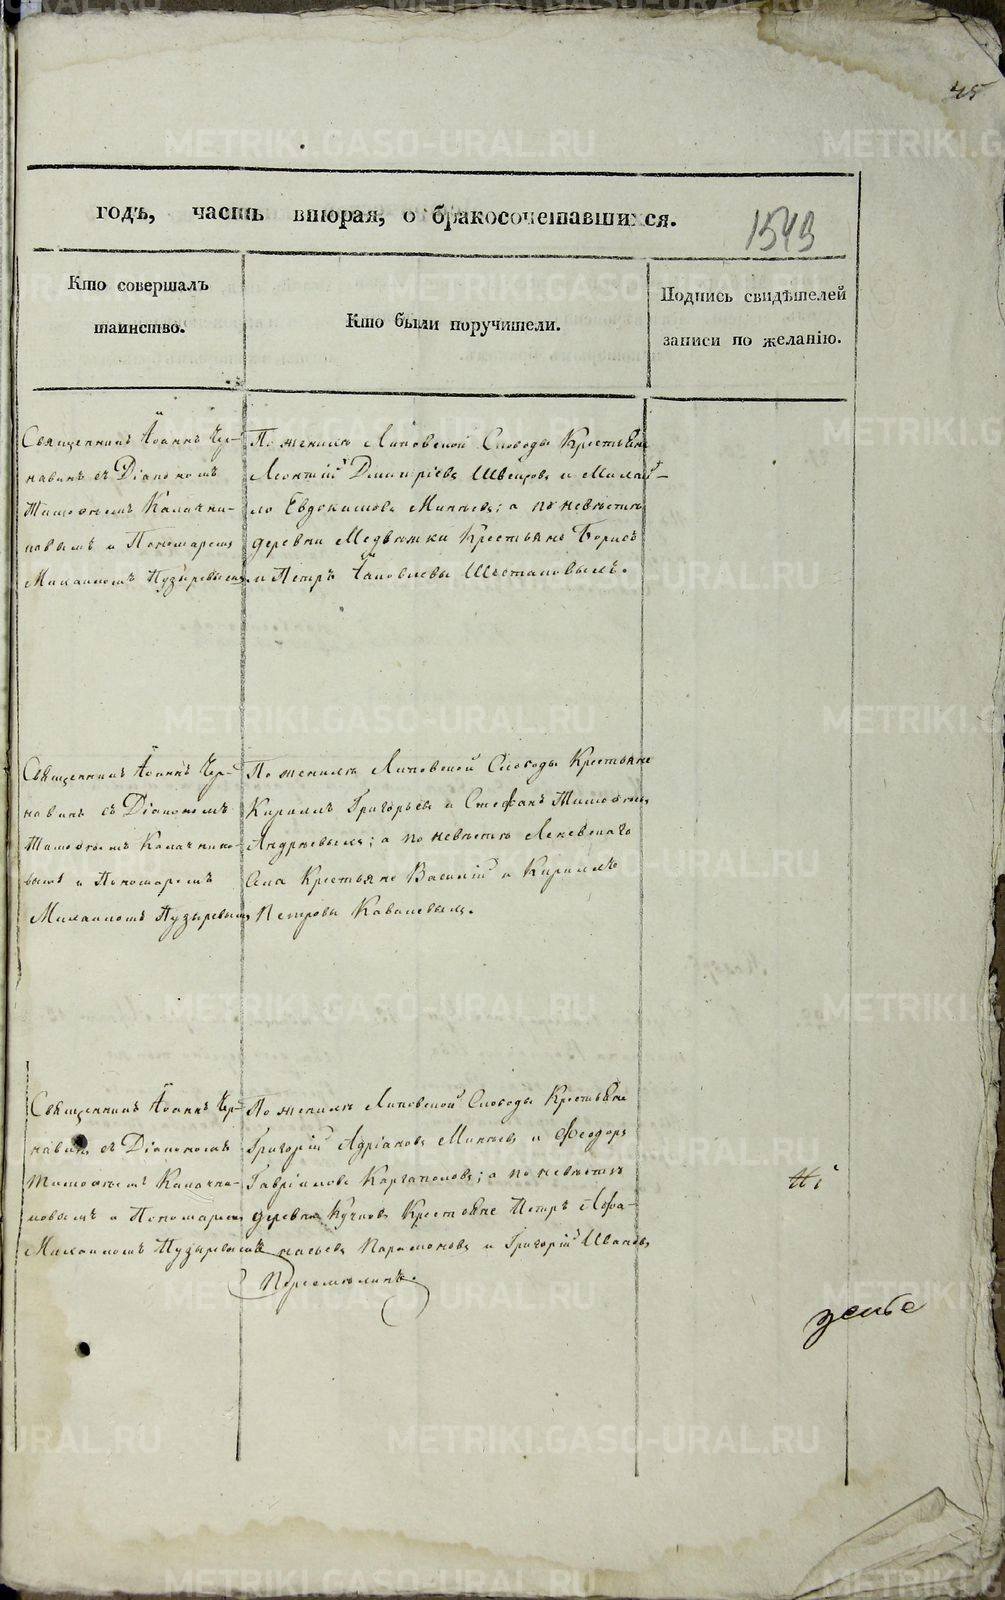 45
годѣ, часть вторая, о бракосочетавшихся.
1543
Кто совершалъ
таинство.
Кто были поручители.
Подпись свидѣтелей
записи по желанію.
Священникъ Іоаннъ Чер-
навинъ съ Діакономъ
Тимофеемъ Калачни-
ковымъ и Пономаремъ
Михаиломъ Пузыревымъ
По женихѣ Липовской Слободы Крестьяне
Леонтій Дмитріевъ Швецовъ и Михай-
ло Евдокимовъ Минѣевъ; а по невѣстѣ
деревни Медвѣдки Крестьяне Борисъ
и Петръ Яковлевы Шестаковымъ.
Священникъ Іоаннъ Чер-
навинъ съ Діакономъ
Тимофеемъ Калачнико-
вымъ и Пономаремъ
Михаиломъ Пузыревымъ
По женихѣ Липовской Слободы Крестьяне
Кириллъ Григорьевъ и Стефанъ Тимофеевъ
Андреевыхъ; а по невѣстѣ Леневскаго
Села Крестьяне Василій и Кириллъ
Петровы Ковалевыхъ.
Священникъ Іоаннъ Чер-
навинъ съ Діакономъ
Тимофеемъ Калачни-
ковымъ и Пономаремъ
Михаиломъ Пузыревымъ
По женихѣ Липовской Слободы Крестьяне
Григорій Адріановъ Минѣевъ и Феодоръ
Гавріиловъ Каргаполовъ; а по невѣстѣ
деревни Крестьяне Петръ Афа-
насьевъ Парамоновъ и Григорій Ивановъ
METRIKI.GASO-URAL.RU